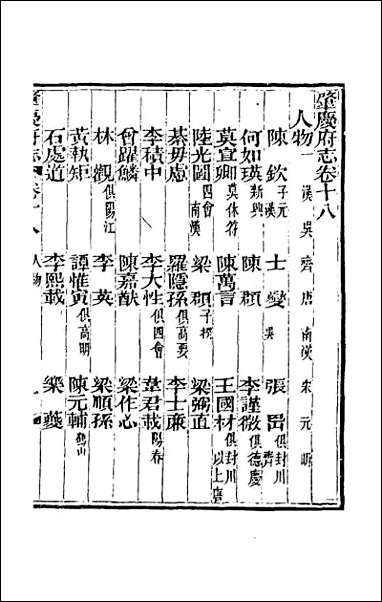 肇慶府志卷十八
人物一 漢 吳 齊 唐 南漢 宋 元 明
陳欽 子元 漢 士燮 吳 張 俱封川 齊
何如瑛 新興 陳頵 李謹微 俱德慶
莫宣卿 莫休符 陳萬言 王國材 俱封川 以上唐
陸光圖 四會 南漢 梁頵 子 梁弼直
綦毋處 羅隱孫 俱高要 李士廉
李積中 李大性 俱四會 韋君載 陽春
曾躍鱗 陳嘉猷 梁作心
林觀 俱陽江 李英 梁順孫
黃執矩 譚惟寅 俱高明 陳元輔 鶴山
石處道 李熙載 梁䕫
肇慶府志 卷十八 人物